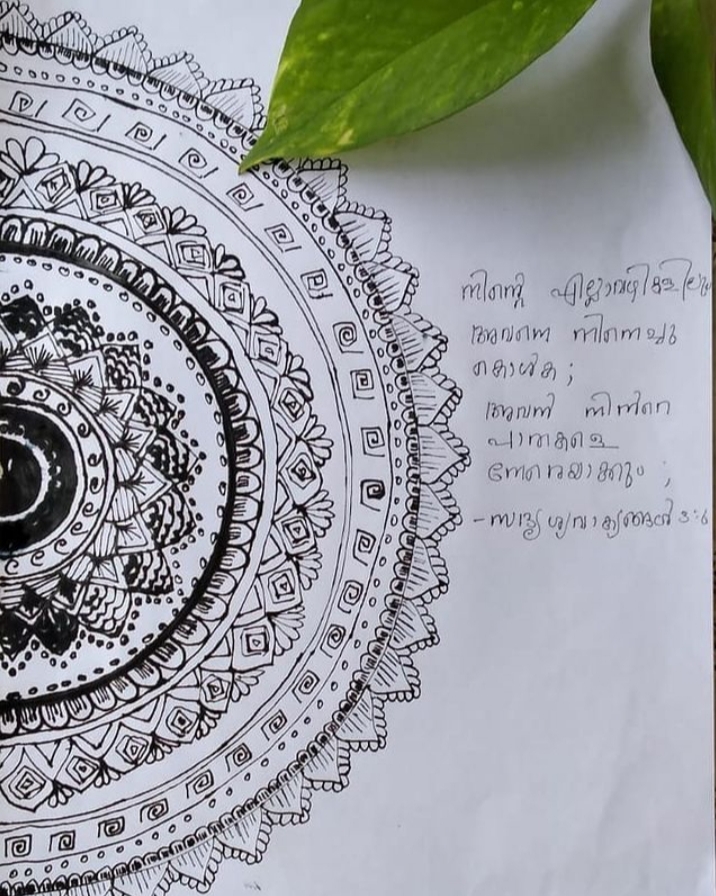 നിന്റെ എല്ലാവഴികളിലും
അവനെ നിനെച്ചു
കൊൾക;
അവൻ നിന്റെ
പാതകളെ
നേരെയാക്കും;
-സദൃശ്യവാക്യങ്ങൾ 3:6